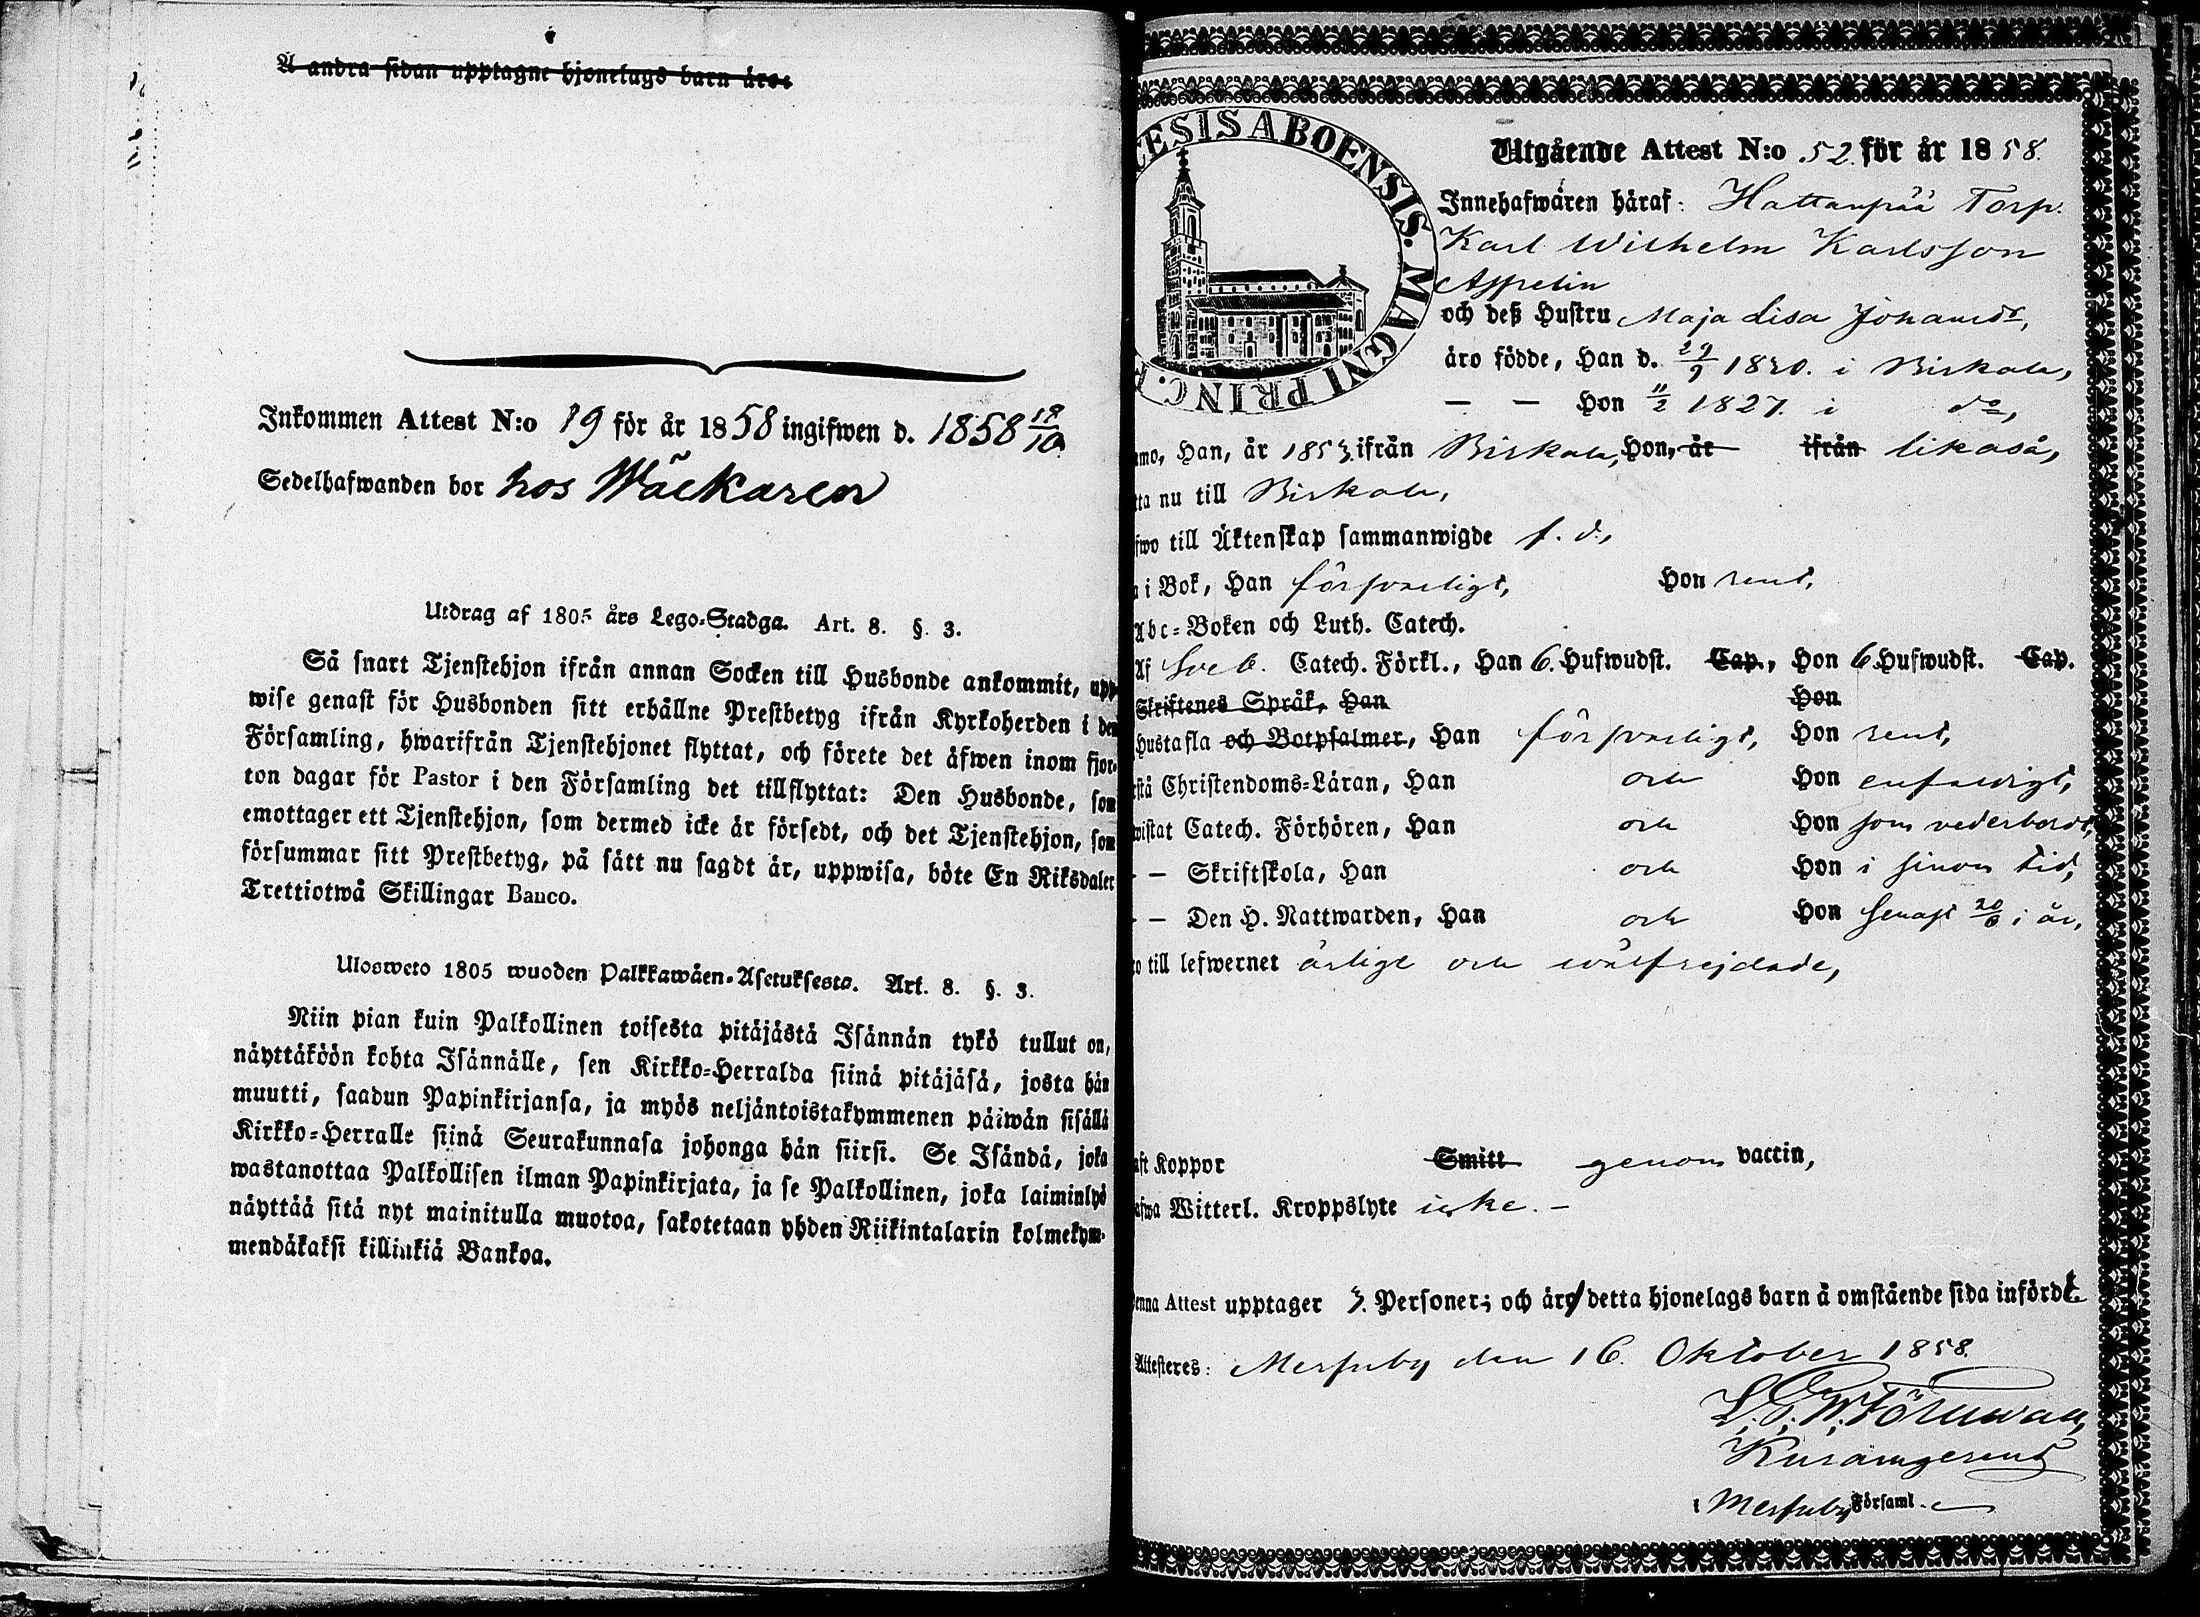 Å andra sidan upptagne hjonelags barn äro:
Inkommen Attest N:o 19 för år 1858 ingifwen d. 1858 18/10
Sedelhafwanden bor hos Wäckaren
Utdrag af 1805 års Lego-Stadga. Art. 8. §. 3.
Så snart Tjenstehjon ifrån annan Socken till Husbonde ankommit, upp-
wise genast för Husbonden sitt erhållne Prestbetyg ifrån Kyrkoherden i den
Församling, hwarifrån Tjenstehjonet flyttat, och förete det äfwen inom fjor-
ton dagar för Pastor i den Församling det tillflyttat: Den Husbonde, som
emottager ett Tjenstehjon, som dermed icke är försedt, och det Tjenstehjon, som
försummar sitt Prestbetyg, på sätt nu sagdt är, uppwisa, böte En Riksdaler
Trettiotwå Skillingar Banco.
Ulosweto 1805 wuoden Palkkawäen-Asetuksesta. Art. 8. §. 3.
Niin pian kuin Palkollinen toisesta pitäjästä Isännän tykö tullut on,
näyttäköön kohta Isännälle, sen Kirkko-Herralda siinä pitäjäsä, josta hän
muutti, saadun Papinkirjansa, ja myös neljäntoistakymmenen päiwän sisällä
Kirkko-Herralle siinä Seurakunnasa johonga hän siirsi. Se Isändä, joka
wastanottaa Palkollisen ilman Papinkirjata, ja se Palkollinen, joka laiminlyö
näyttää sitä nyt mainitulla muotoa, sakotetaan yhden Riikintalarin kolmekym-
mendäkaksi killinkiä Bankoa.
ESIS ABOENSIS. MAGNI PRINC. F
Utgående Attest N:o 52. för år 1858.
Innehafwaren häraf: Hattanpää Torp.
Karl Wilhelm Karlsson
Appelin
och deß Hustru Maja Lisa Johansdr,
äro födde, Han d. 29/9 1820. i Birkala,
— — Hon 11/2 1827. i do,
mo, Han, år 1853. ifrån Birkala, Hon, år ifrån likaså,
tta nu till Birkala,
fwo till Äktenskap sammanwigde f. d.,
i Bok, Han försvarligt, Hon rent,
Abc-Boken och Luth. Catech.
Af Sveb. Catech. Förkl., Han 6. Hufwudst. Cap., Hon 6 Hufwudst. Cap.
Skriftenes Språk, Han Hon
Hustafla och Botpsalmer, Han försvarligt, Hon rent,
stå Christendoms-Läran, Han och Hon enfaldigt,
wistat Catech. Förhören, Han och Hon som vederbordt,
— Skriftskola, Han och Hon i sinom tid,
— Den H. Nattwarden, Han och Hon senast 20/6 i år,
o till lefwernet ärlige och wälfrejdade,
aft Koppor Smitt genom vaccin,
afwa Witterl. Kroppslyte icke. —
enna Attest upptager 3. Personer; och äro detta hjonelags barn å omstående sida införde
Attesteres: Messuby den 16. Oktober 1858.
Kuraamgerent
i Messuby Församl.